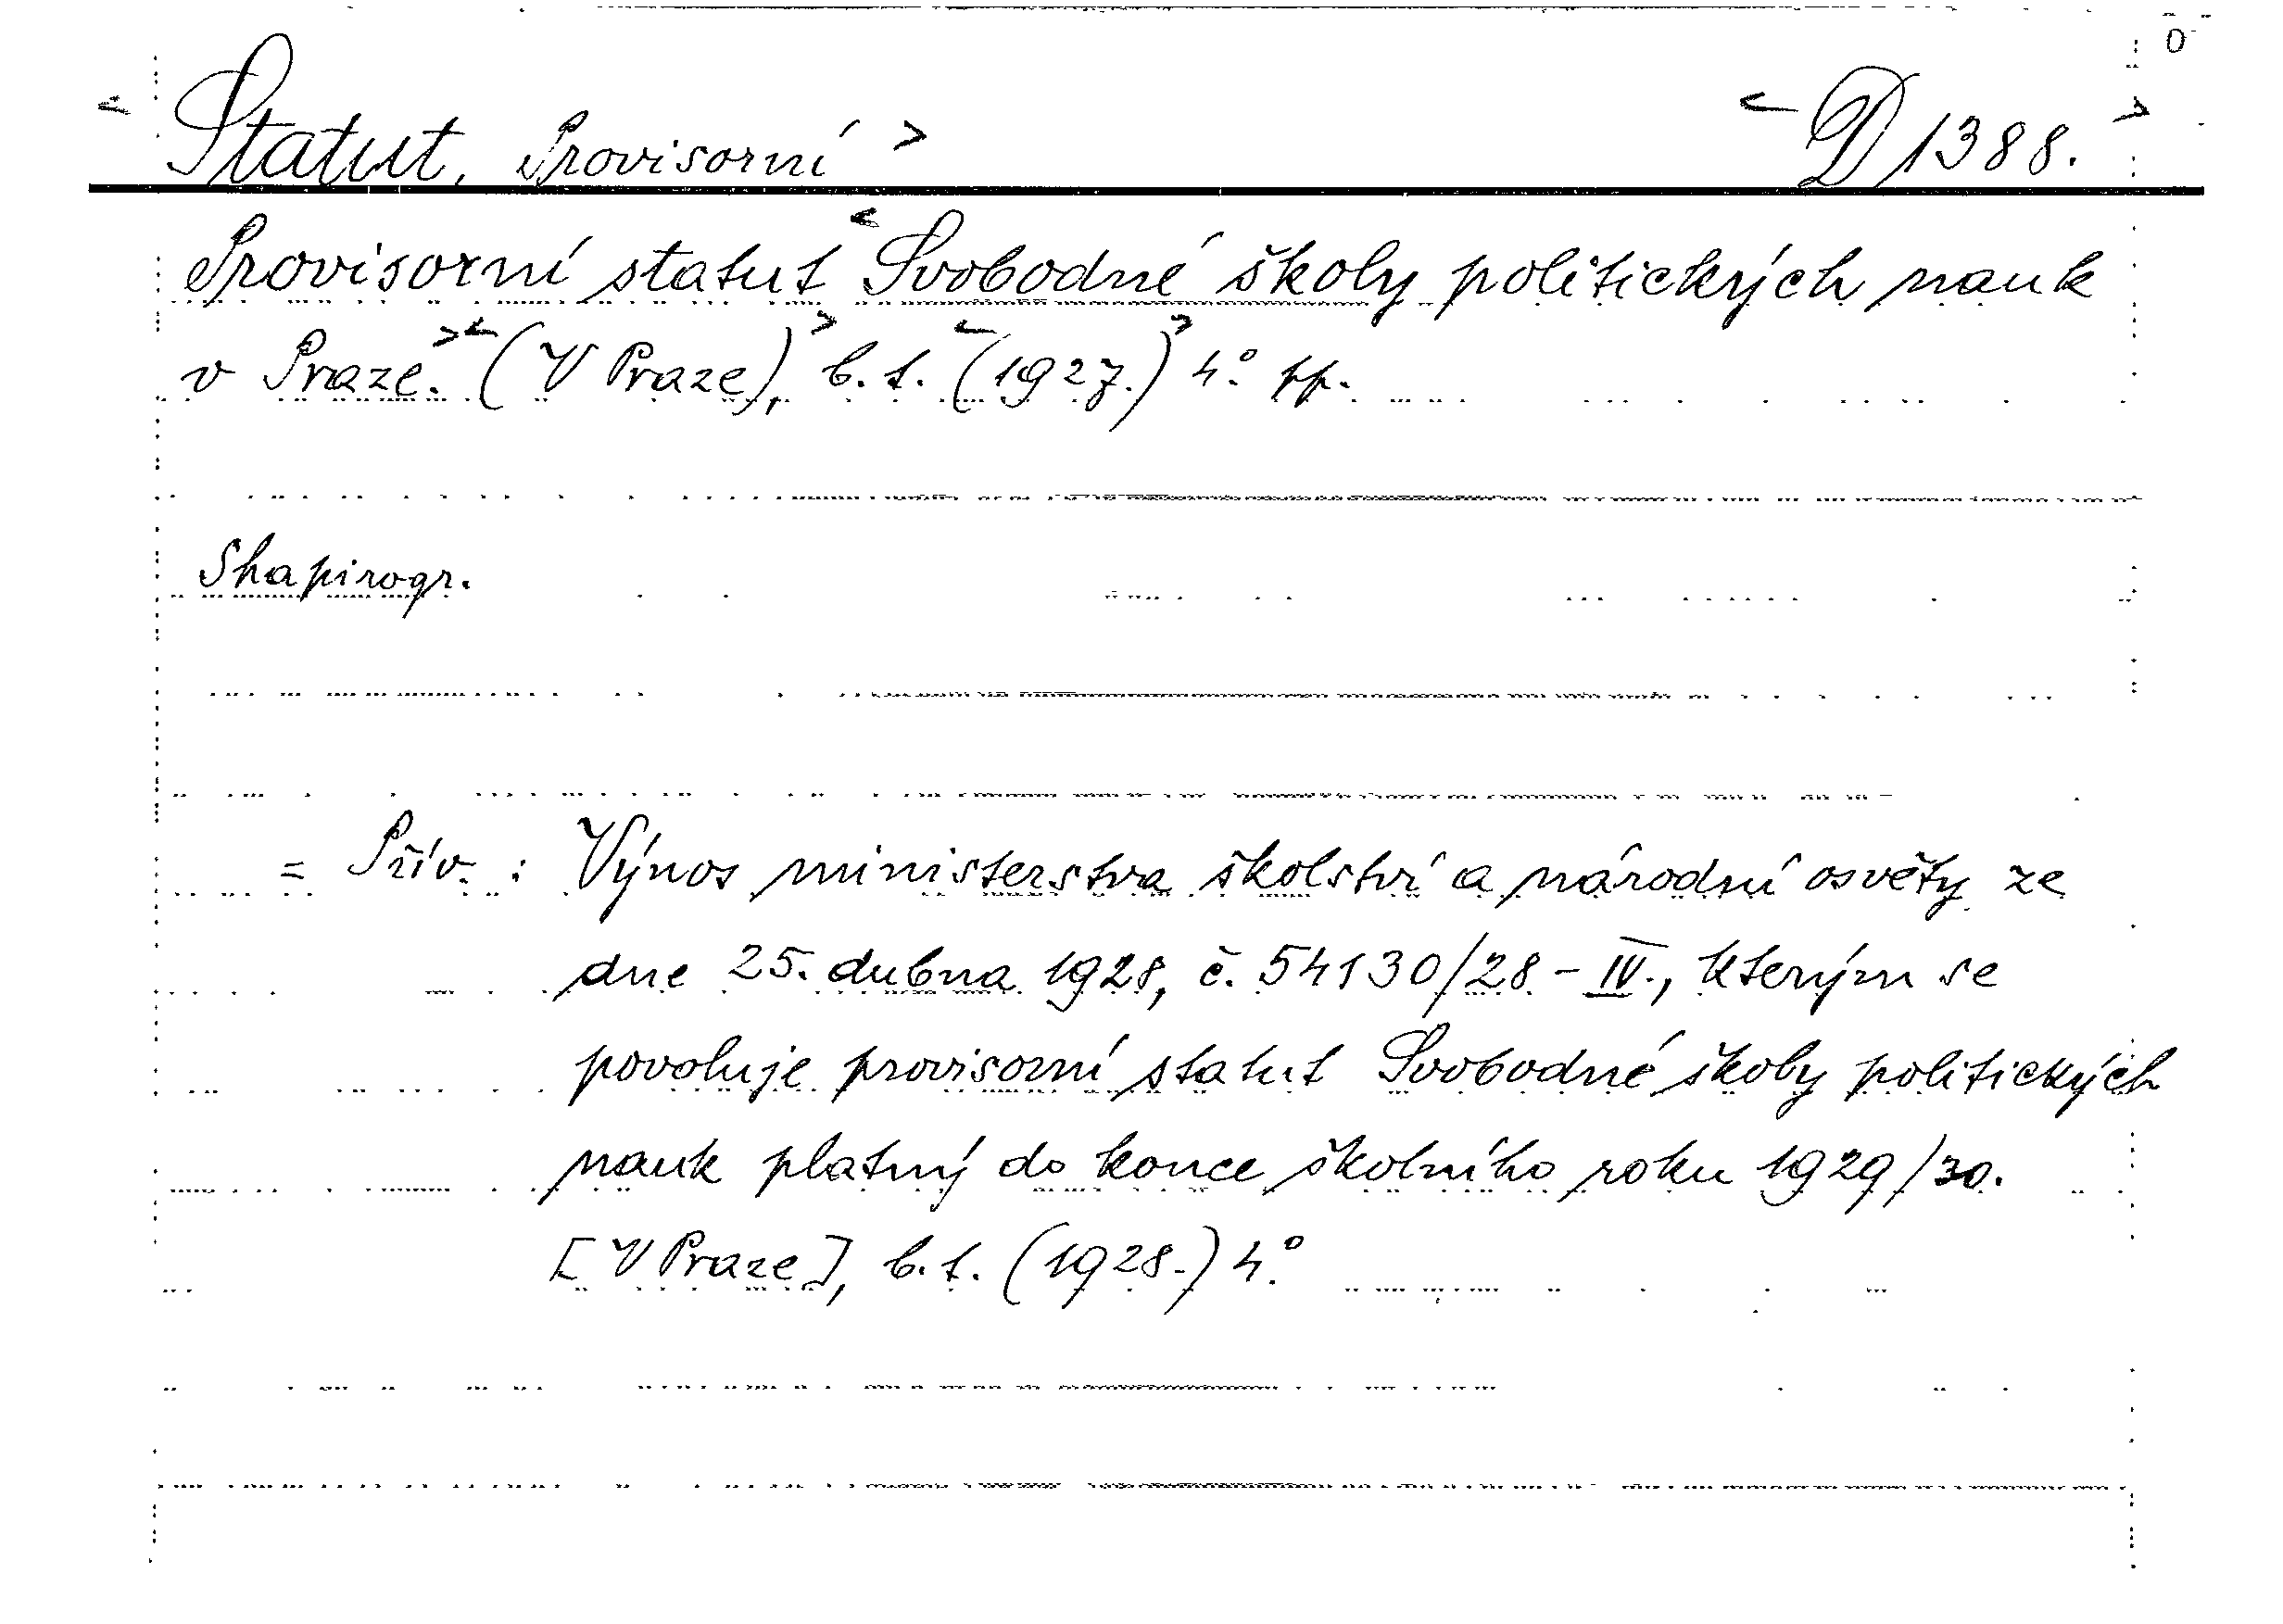 < Statut, Provisorní > < D 1388. >
0
Provisorní statut < Svobodné školy politických nauk
v Praze. > < (V Praze), > b. t. < (1927.) > 4.° pp.
Shapirogr.
= Přív. : Výnos ministerstva školství a národní osvěty ze
dne 25. dubna 1928, č. 54130/28 - IV., kterým se
povoluje provisorní statut Svobodné školy politických
nauk platný do konce školního roku 1929/30.
[V Praze], b. t. (1928.) 4.°